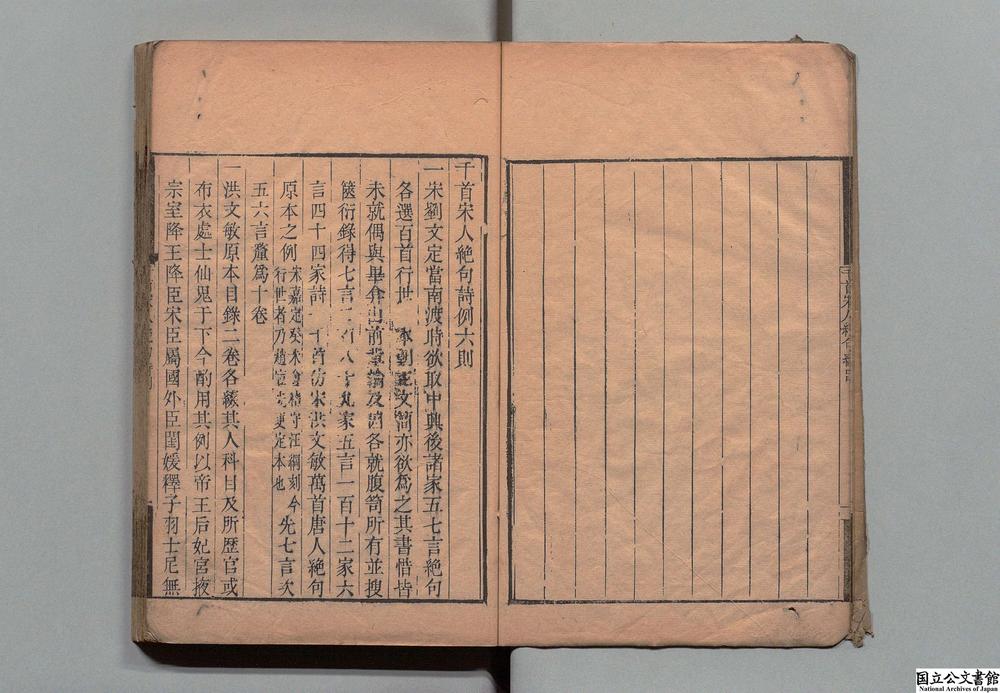 千首宋人絶句詩例六則
一宋劉文定當南渡時欲取中興後諸家五七言絶句
各選百首行世 本朝王文簡亦欲爲之其書惜皆
未就偶與畢介山前輩論及因各就腹笥所有並搜
篋衍錄得七言二百八十九家五言一百十二家六
言四十四家詩一千首仿宋洪文敏萬首唐人絶句
原本之例宋嘉定癸未 守汪綱刻今
行世者乃趙宧光更定本也先七言次
五六言釐爲十卷
一洪文敏原本目錄二卷各綴其人科目及所歷官或
布衣處士仙鬼于下今酌用其例以帝王后妃宮掖
宗室降王降臣宋臣屬國外臣閨媛釋子羽士尼無
国立公文書館
National Archives of Japan